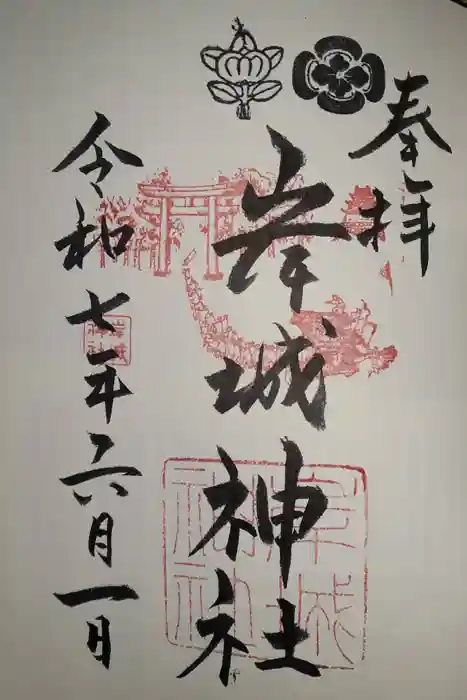 奉拝
岸城神社
令和七年六月一日
岸城神社